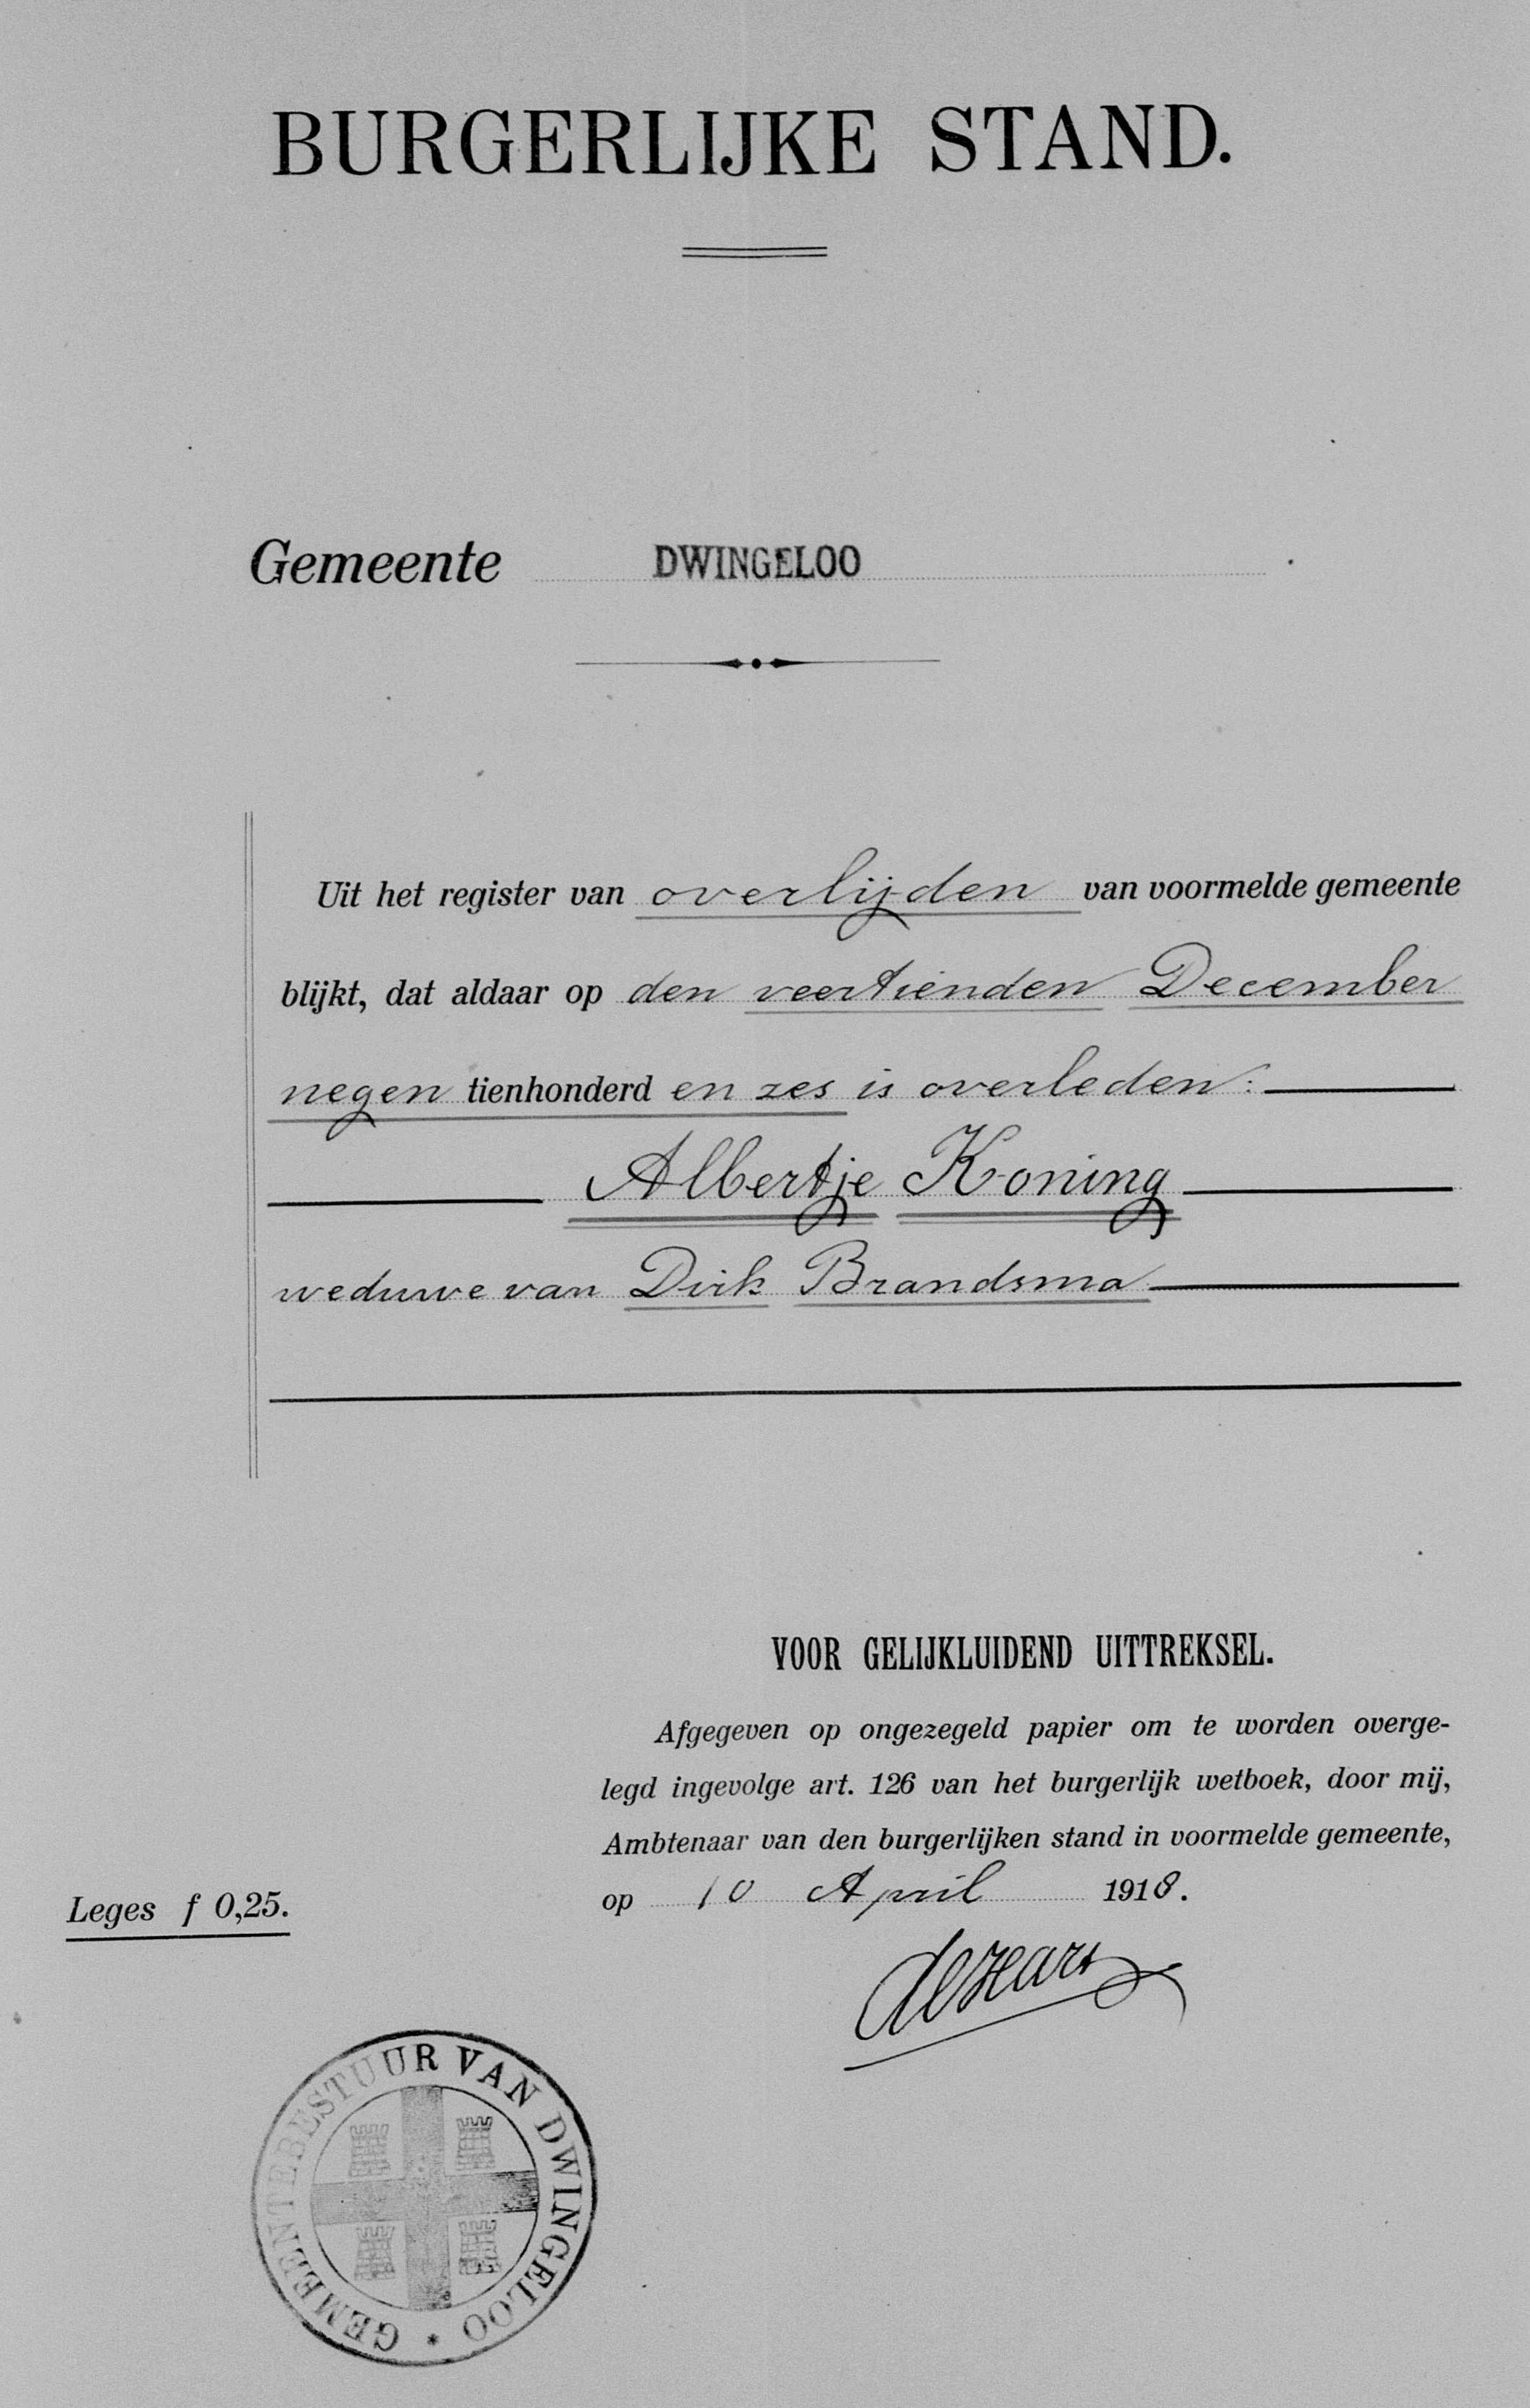 BURGERLIJKE STAND.
Gemeente DWINGELOO
Uit het register van overlijden van voormelde gemeente
blijkt, dat aldaar op den veertienden December
negen tienhonderd en zes is overleden:
Albertje Koning
weduwe van Dirk Brandsma
VOOR GELIJKLUIDEND UITTREKSEL.
Afgegeven op ongezegeld papier om te worden overge-
legd ingevolge art. 126 van het burgerlijk wetboek, door mij,
Ambtenaar van den burgerlijken stand in voormelde gemeente,
op 10 April 1918.
Leges f 0,25.
GEMEENTEBESTUUR VAN DWINGELOO *